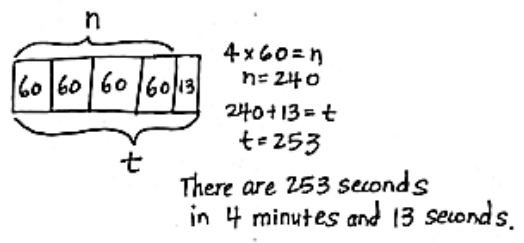 n
60 60 60 60 13
t
4 × 60 = n
n = 240
240 + 13 = t
t = 253
There are 253 seconds
in 4 minutes and 13 seconds.